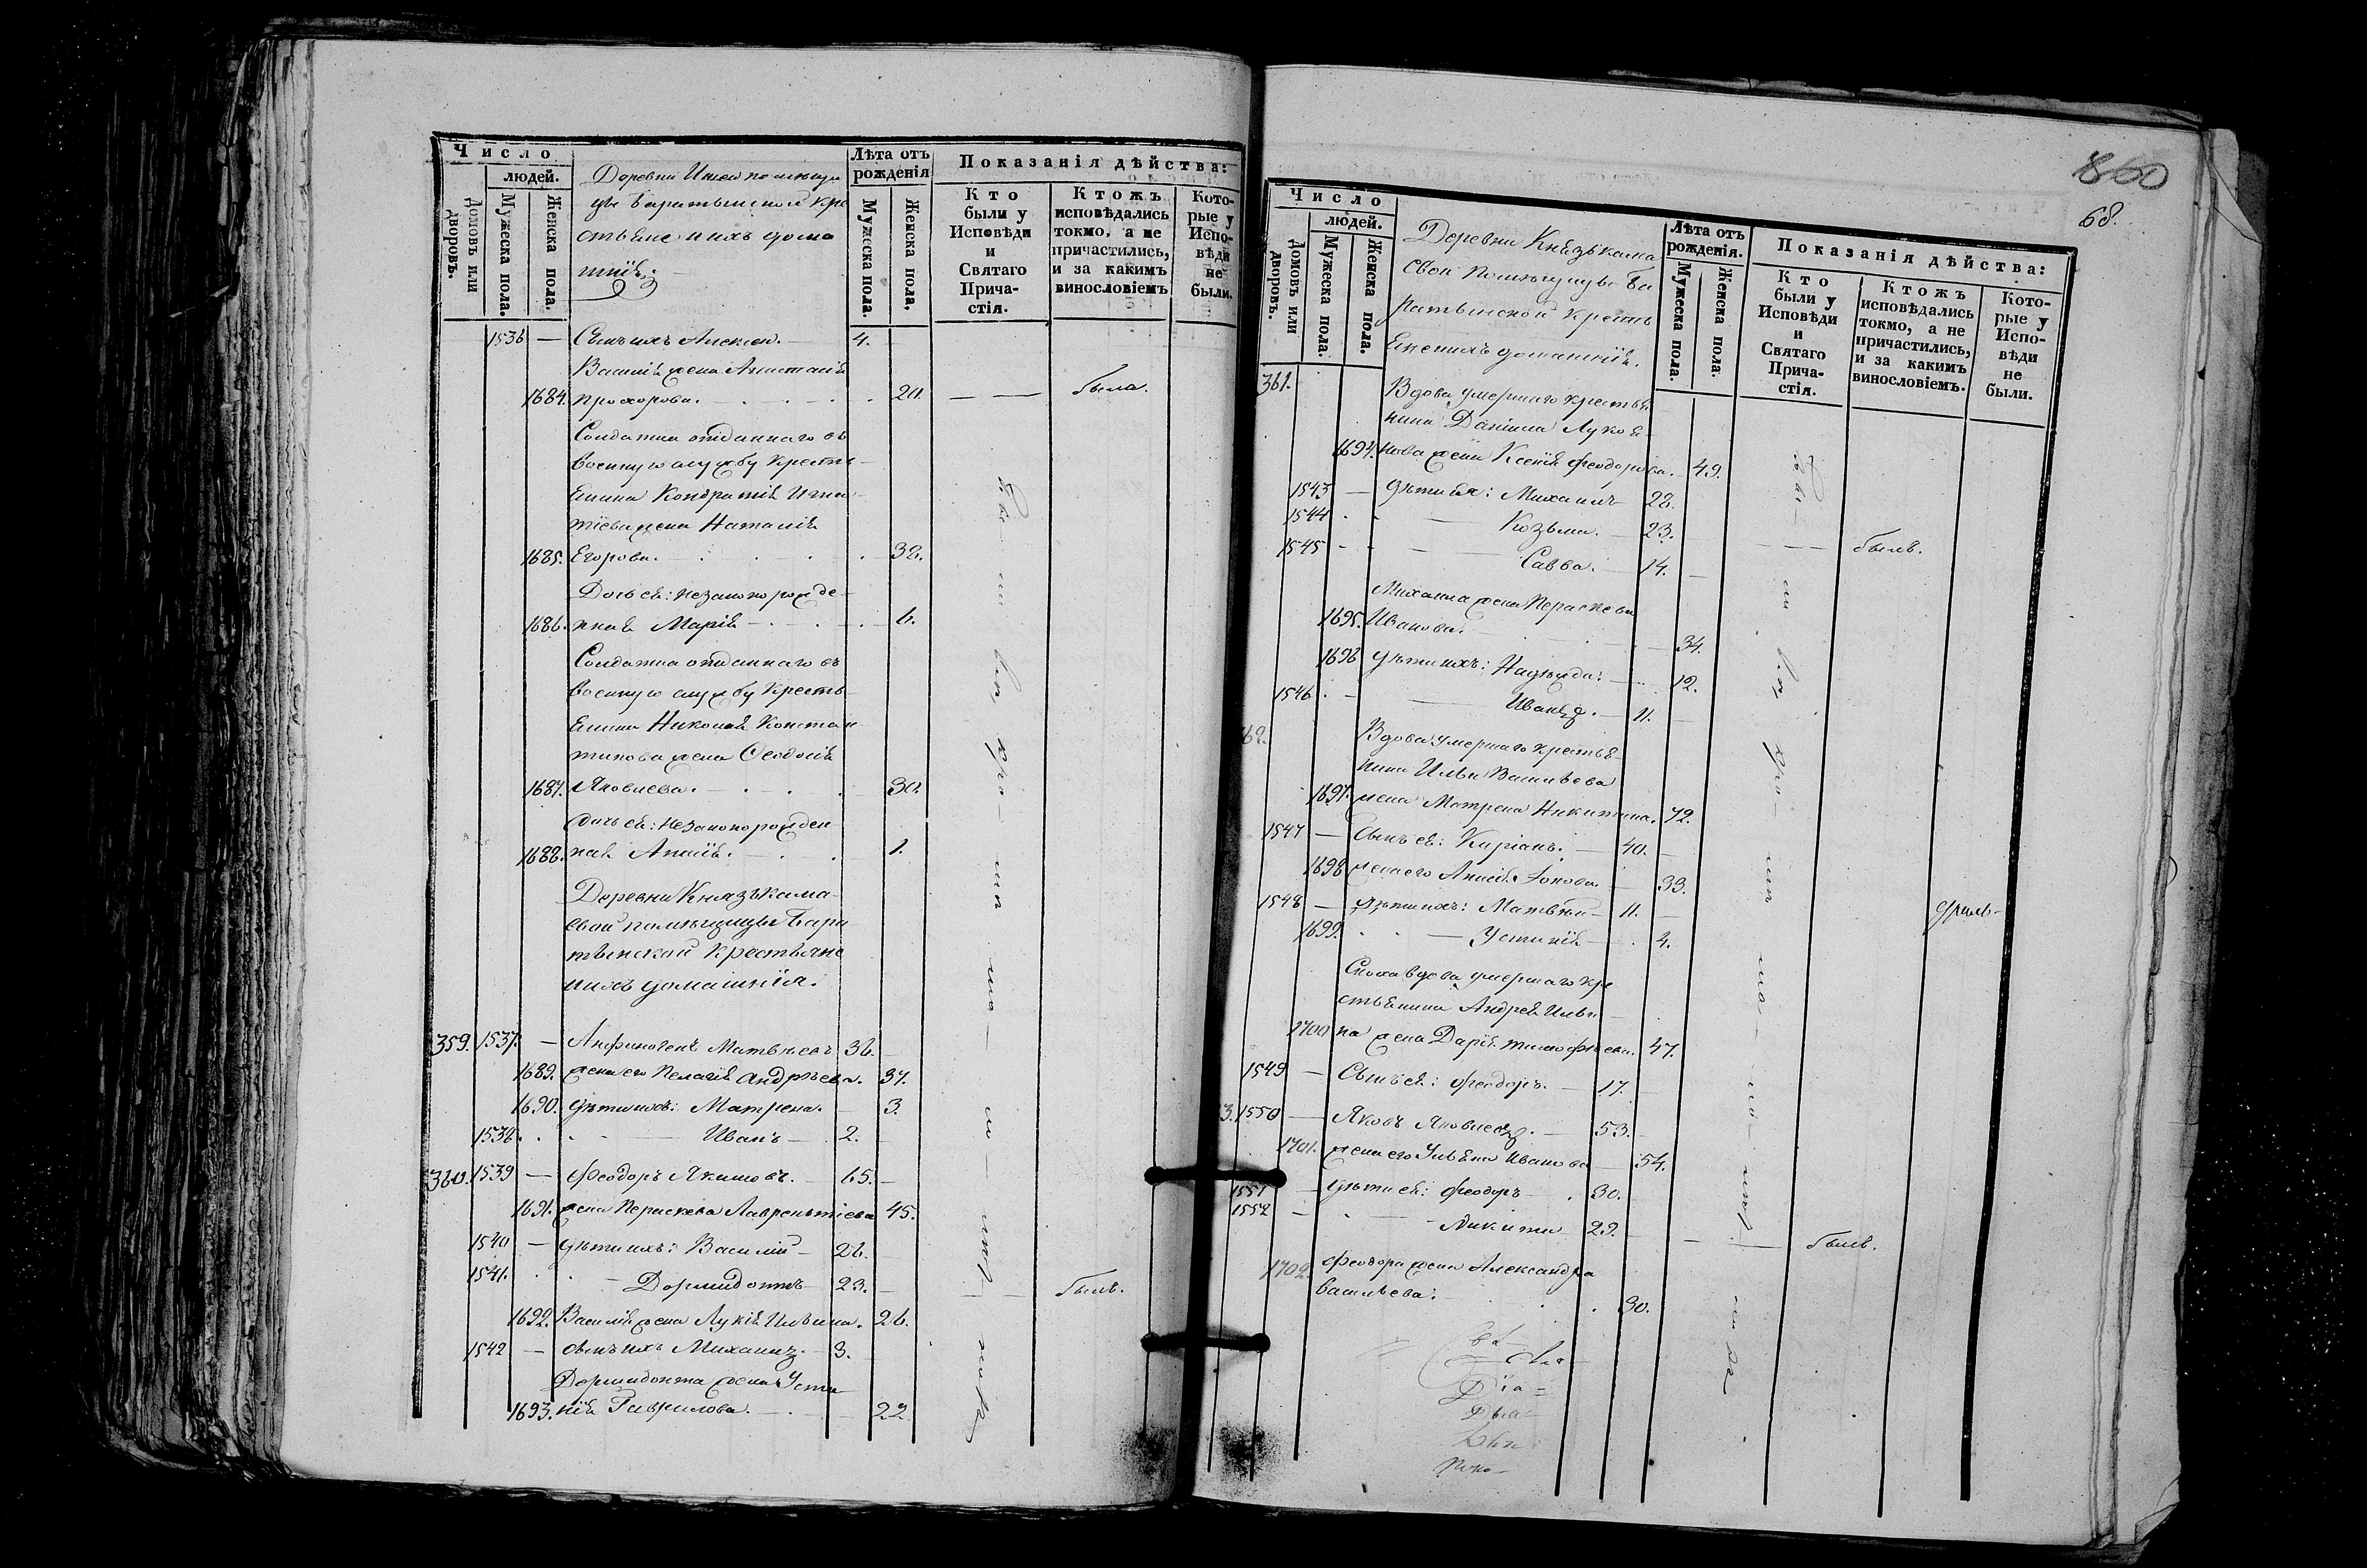 Число
людей.
Домовъ или дворовъ.
Мужеска пола.
Женска пола.
Деревни
помѣщи
цы Баратынской кре
стьяне и ихъ дома
шнія.
Лѣта отъ рожденія
Мужеска пола.
Женска пола.
Показанія дѣйства:
Кто были у Исповѣди и Святаго Прича-стія.
Ктожъ исповѣдались токмо, а не причастились, и за какимъ винословіемъ
Кото-рые у Испо-вѣди не были.
1536 — Сынъ ихъ Алексѣй. 4.
Василія жена Анастасія
1684. Прохорова. 20. была.
Солдатка отданнаго въ
военную службу Кресть-
янина Кондратія Игна-
тіева жена Наталія
1685. Егорова. 38.
Дочь ея: незаконорожде-
1686. нная Марія 6.
Солдатка отданнаго въ
военную службу Кресть-
янина Николая Констан-
тинова жена Ѳеодосія
1687. Яковлева. 30.
дочь ея: незаконорожден
1688. ная Анна. 1.
Деревни Князъкама-
свой помѣщицы Бара
тынской Крестьяне
и ихъ домашнія.
359. 1537. — Анфиногенъ Матвѣевъ 36.
1689. жена его Пелагія Андрѣева. 37.
1690. дѣти ихъ: Матрена. 3.
1538. Иванъ 2.
360. 1539 — Феодоръ Якимовъ. 65.
1691. жена Параскева Лаврентіева 45.
1540 — дѣти ихъ: Василій 26.
1541. Дормидонтъ 23. былъ.
1692. Василія жена Лукія Ильина. 26.
1542 — сынъ ихъ Михаилъ. 3.
Дормидонта жена Усти
1693. нія Гаврилова. 22.
860
68.
Число
людей.
Домовъ или дворовъ.
Мужеска пола.
Женска пола.
Деревни Князъкама
свой Помѣщицы Ба
ратынской Кресть
яне и ихъ домашнія.
Лѣта отъ рожденія.
Мужеска пола.
Женска пола.
Показанія дѣйства:
Кто были у Исповѣди и Святаго Прича-стія.
Ктожъ исповѣдались токмо, а не причастились, и за какимъ винословіемъ.
Кото-рые у Испо-вѣди не были.
361. Вдова умершаго крестья
нина Даніила Лукоя-
1694. нова жена Ксенія Феодорова. 49.
1543 — дѣти ея: Михаилъ 28.
1544 Козьма. 23.
1545 Савва. 14. былъ.
Михаила жена Параскева
1695. Иванова. 34.
1696 дѣти ихъ: Надежда. 12.
1546 Иванъ. 11.
362. Вдова умершаго крестья-
нина Ильи Васильева
1697. жена Матрена Никитина. 72.
1547 — Сынъ ея: Киріанъ. 40.
1698 жена его Анисія 33.
1548 — дѣти ихъ: Матвѣй 11.
1699. Устинія 4.
Сноха вдова умершаго кре
стьянина Андрея Ильи
1700 на жена Дарія Тимофѣева. 47.
1549 — Сынъ ея: Феодоръ. 17.
3. 1550 — Яковъ Яковлевъ. 53.
1701. жена его Ульяна Иванова 54.
1551 — дѣти ея: Феодоръ 30.
1552 — Никита 23. былъ.
1702. Феодора жена Александра
Васильева. 30.